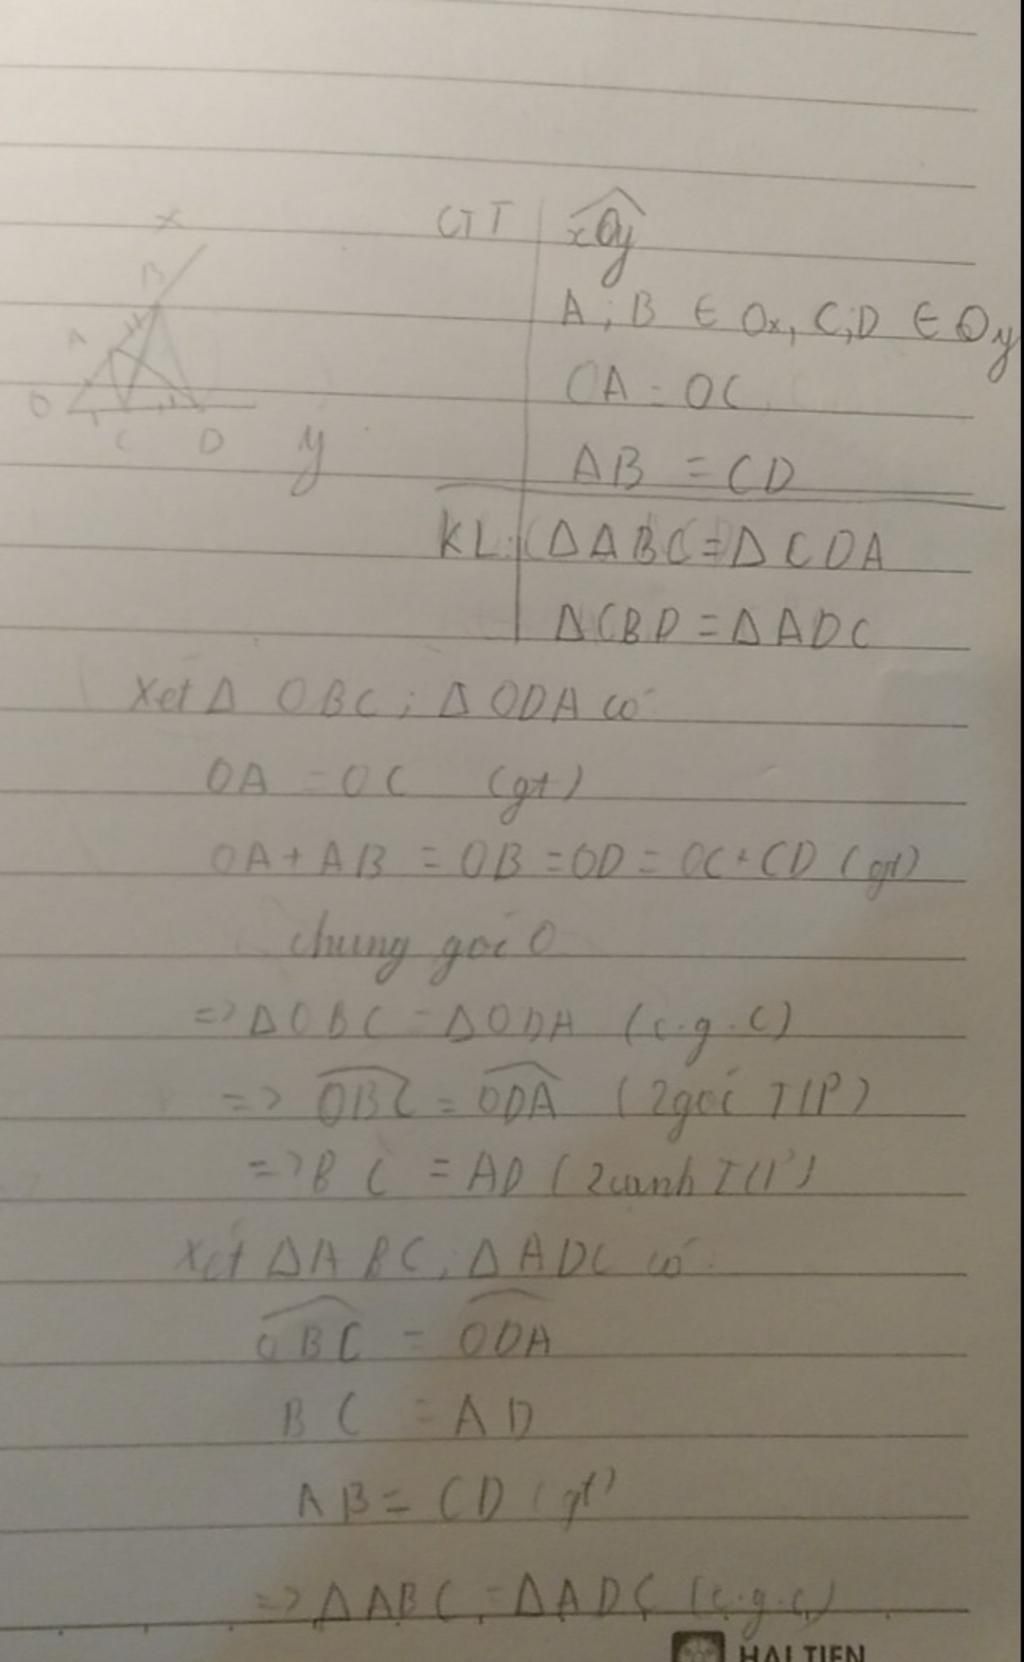 x
B
A
O
C D y
GT | xOy
A; B ∈ Ox, C; D ∈ Oy
OA = OC
AB = CD
KL: ΔABC = ΔCDA
ΔCBD = ΔADC
Xet Δ OBC; Δ ODA có
OA = OC (gt)
OA + AB = OB = OD = OC + CD (gt)
chung goc O
=> ΔOBC = ΔODA (c.g.c)
=> OBC = ODA (2 goc T/Ư)
=> BC = AD (2 canh T/Ư)
Xét ΔABC, ΔADC có
OBC = ODA
BC = AD
AB = CD (gt)
=> ΔABC = ΔADC (c.g.c)
HẢI TIẾN